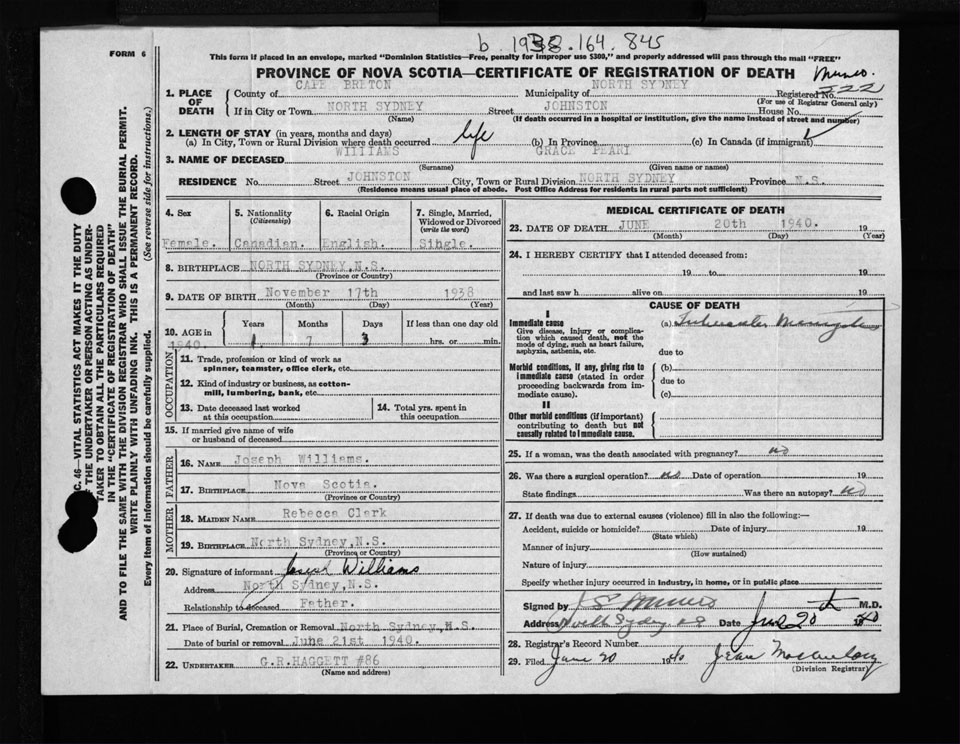 b. 1938.164.845
FORM 6
This form if placed in an envelope, marked "Dominion Statistics—Free, penalty for improper use $300," and properly addressed will pass through the mail "FREE"
PROVINCE OF NOVA SCOTIA—CERTIFICATE OF REGISTRATION OF DEATH
Munro.
1. PLACE OF DEATH
County of CAPE BRETON Municipality of NORTH SYDNEY Registered No. 222
(For use of Registrar General only)
If in City or Town NORTH SYDNEY Street JOHNSTON House No.
(Name) (If death occurred in a hospital or institution, give the name instead of street and number)
2. LENGTH OF STAY (in years, months and days)
(a) In City, Town or Rural Division where death occurred life (b) In Province (c) In Canada (if immigrant)
3. NAME OF DECEASED WILLIAMS GRACE PEARL
(Surname) (Given name or names)
RESIDENCE No. Street JOHNSTON City, Town or Rural Division NORTH SYDNEY Province N.S.
(Residence means usual place of abode. Post Office Address for residents in rural parts not sufficient)
C. 46—VITAL STATISTICS ACT MAKES IT THE DUTY
OF THE UNDERTAKER OR PERSON ACTING AS UNDER-
TAKER TO OBTAIN ALL THE PARTICULARS REQUIRED
IN THE "CERTIFICATE OF REGISTRATION OF DEATH"
AND TO FILE THE SAME WITH THE DIVISION REGISTRAR WHO SHALL ISSUE THE BURIAL PERMIT.
WRITE PLAINLY WITH UNFADING INK. THIS IS A PERMANENT RECORD.
Every item of information should be carefully supplied. (See reverse side for instructions.)
4. Sex
Female.
5. Nationality
(Citizenship)
Canadian.
6. Racial Origin
English.
7. Single, Married,
Widowed or Divorced
(write the word)
Single.
8. BIRTHPLACE NORTH SYDNEY,N.S.
(Province or Country)
9. DATE OF BIRTH November 17th 1938
(Month) (Day) (Year)
10. AGE in Years Months Days If less than one day old
1940. 1 7 3 hrs. or min.
OCCUPATION
11. Trade, profession or kind of work as
spinner, teamster, office clerk, etc.
12. Kind of industry or business, as cotton-
mill, lumbering, bank, etc.
13. Date deceased last worked
at this occupation
14. Total yrs. spent in
this occupation
15. If married give name of wife
or husband of deceased
FATHER
16. NAME Joseph Williams.
17. BIRTHPLACE Nova Scotia.
(Province or Country)
MOTHER
18. MAIDEN NAME Rebecca Clark
19. BIRTHPLACE North Sydney,N.S.
(Province or Country)
20. Signature of informant Joseph Williams
Address North Sydney,N.S.
Relationship to deceased Father.
21. Place of Burial, Cremation or Removal North Sydney,N.S.
Date of burial or removal June 21st 1940.
22. UNDERTAKER G.R.HAGGETT #86
(Name and address)
MEDICAL CERTIFICATE OF DEATH
23. DATE OF DEATH JUNE 20th 1940. 19
(Month) (Day) (Year)
24. I HEREBY CERTIFY that I attended deceased from:
19 to 19
and last saw h alive on 19
CAUSE OF DEATH
I
Immediate cause
Give disease, injury or complica-
tion which caused death, not the
mode of dying, such as heart failure,
asphyxia, asthenia, etc.
(a)
due to
Morbid conditions, if any, giving rise to
immediate cause (stated in order
proceeding backwards from im-
mediate cause).
(b)
due to
(c)
II
Other morbid conditions (if important)
contributing to death but not
causally related to immediate cause.
25. If a woman, was the death associated with pregnancy? no
26. Was there a surgical operation? no Date of operation 19
State findings Was there an autopsy? no
27. If death was due to external causes (violence) fill in also the following:—
Accident, suicide or homicide? Date of injury 19
(State which)
Manner of injury
(How sustained)
Nature of injury
Specify whether injury occurred in industry, in home, or in public place
Signed by Munro M.D.
Address North Sydney NS Date June 20th 1940
28. Registrar's Record Number
29. Filed June 20 1940 Jean
(Division Registrar)